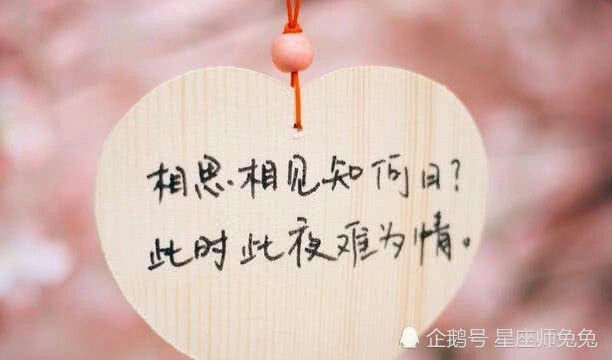 相思相见知何日？
此时此夜难为情。
企鹅号 星座师兔兔